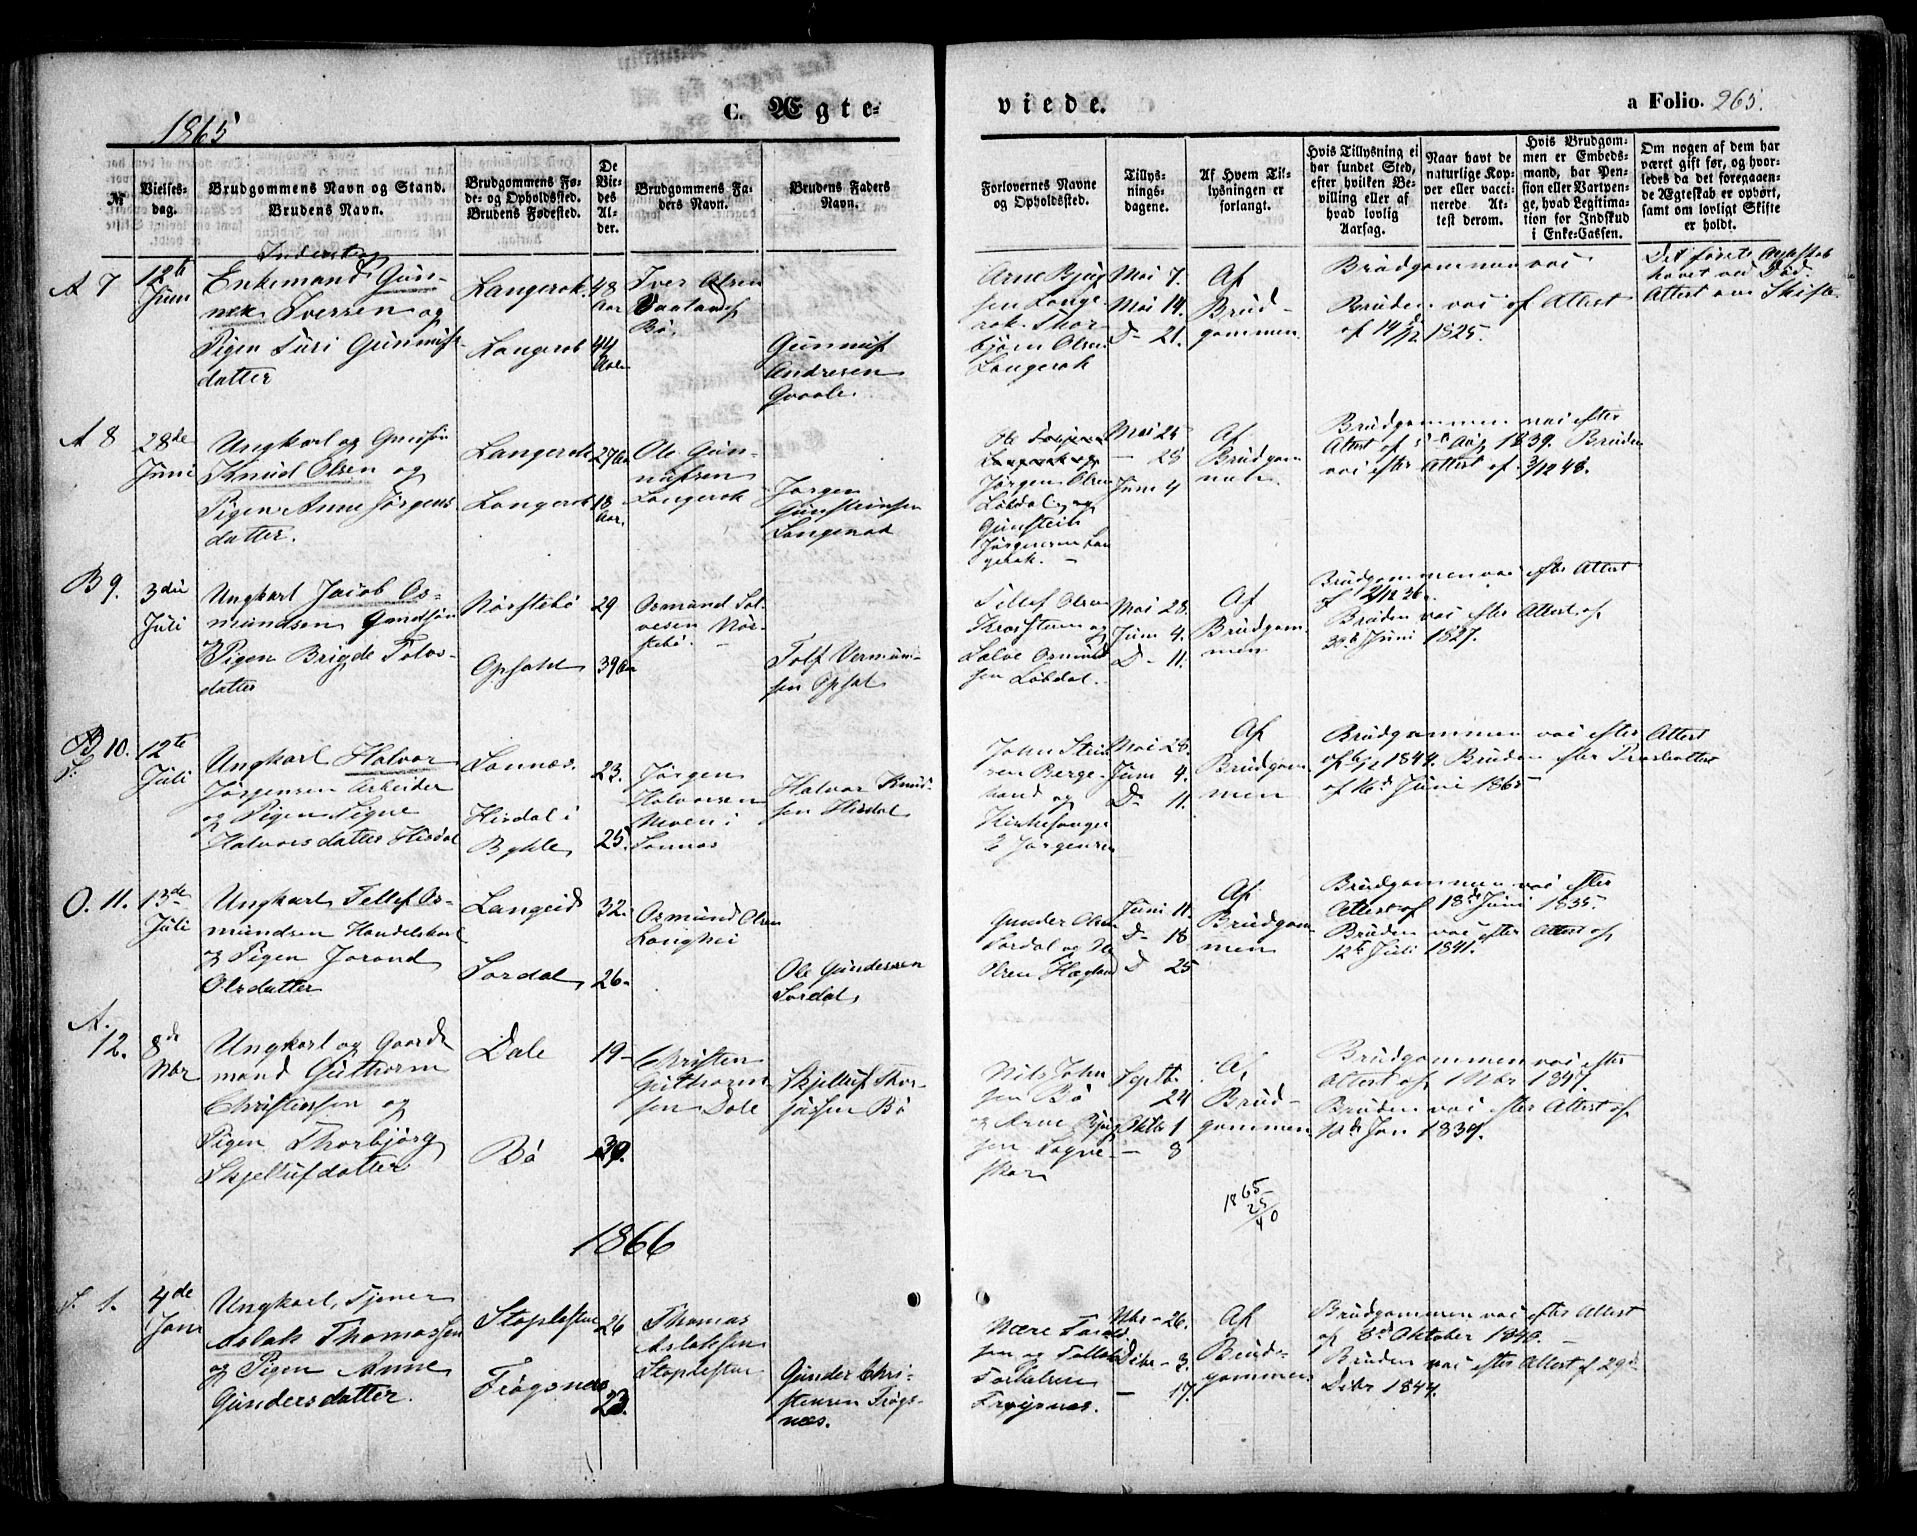 1865
C. Ægte-
viede.
a Folio. 265.
№
Vielses-
dag.
Brudgommens Navn og Stand.
Brudens Navn.
Brudgommens Fø-
de- og Opholdssted.
Brudens Fødested.
De
Vie-
des
Al-
der.
Brudgommens Fa-
ders Navn.
Brudens Faders
Navn.
Forlovernes Navne
og Opholdssted.
Tillys-
nings-
dagene.
Af Hvem Til-
lysningen er
forlangt.
Hvis Tillysning ei
har fundet Sted,
efter hvilken Be-
villing eller af
hvad lovlig
Aarsag.
Naar havt de
naturlige Kop-
per eller vacci-
nerede At-
test derom.
Hvis Brudgom-
men er Embeds-
mand, har Pen-
sion eller Vartpen-
ge, hvad Legitima-
tion for Indskud
i Enke-Cassen.
Om nogen af dem har
været gift før, og hvor-
ledes da det foregaaen-
de Ægteskab er ophørt,
samt om lovligt Skifte
er holdt.
A 7
12te
Juni
Enkemand Gun-
Iversen og
Pigen Siri Gunnufs-
datter
Langerak
Langerak
48
Aar
44
Aar
Iver Olsen
Bø
Gunnuf
Andresen
Arne Bjug
sen Lange
rak. Thor-
bjørn Olsen
Langerak
Mai 7
Mai 14.
D- 21.
Af
Brud-
gommen.
Brudgommen vac
Bruden vac. ef. Attest
af 14/12 1825.
Det første Ægteskab
hævet ved Død.
Attest om Skifte
A 8
28de
Juni
Ungkarl og
Knud Olsen og
Pigen Anne Jørgens
datter.
Langerak
Langerak
27 Aar
18
Aar.
Ole Gun-
nufsen
Langerak
Jørgen
Gunsteinsen
Langerak
Ole
Jørgen Olsen
Løbdal og
Gunstein
Jørgensen Lan
gerak. -
Mai 25
- 28
Juni 4
Af
Brudgom
men.
Brudgommen vac. efter
Attest af Aug 1839. Bruden
vac. efter Attest af 3/12 48.
B 9.
3die
Juli
Ungkarl Jacob Os-
mundsen Gaardsøn
og Pigen Brigde Tolvs-
datter
Nørstebø
Opsahl
29
39 Aar
Osmund Sal-
vesen Nør-
stebø. -
Tolf Vermun-
sen Opsal
Tellef Olsen
og
Salve Osmund
sen Løbdal.
Mai 28.
Juni 4.
D- 11.
Af
Brudgom-
men
Brudgommen vac. efter Attest
af
Bruden vac. efter Attest af
30te Juni 1827.
10.
12te
Juli
Ungkarl Halvor
Jørgensen Arbeider
og Pigen Signe
Halvorsdatter Hisdal
Sonnæs.
Hisdal i
Bykle
23.
25.
Jørgen
Halvorsen
Moen i
Sonnæs
Halvor Knud-
sen Hisdal
John Stein
sen Berge-
land og
Kirkesanger
Jørgensen
Mai 28.
Juni 4.
D- 11.
Af
Brudgom
men
Brudgommen vac. efter Attest
af 1844. Bruden efter Præsteattest
af 16de Juni 1865
O. 11.
13de
Juli
Ungkarl Tellef Os-
mundsen Handelskarl
og Pigen Jorand
Olsdatter
Langeid
Sordal
32.
26-
Osmund Olsen
Langhei
Ole Gundersen
Sordal
Gunder Olsen
Sordal og Ole
Olsen Hægland
Juni 11.
D- 18
D 25
Af
Brudgom-
men
Brudgommen vac. efter
Attest af 18de Juni 1835.
Bruden vac. efter Attest af
12te Juli 1841.
A.
12.
8de
Nbr
Ungkarl og Gaard
mand Guthorm
Christensen og
Pigen Thorbjørg
Skjellufdatter
Dale
Bø
19-
39.
Christen
Guthorm
sen Dale
Skjelluf Thor-
Bø
Nils John
sen Bø
og Arne Bjug
sen Sagne-
skar
Septb.
24
Oktbr 1
- 8
Af
Brud-
gommen
Brudgommen vac. efter
Attest af 1 Nbr 1847.
Bruden vac. efter Attest af
10de Jan 1839.
1865
25
40
1866
1.
4de
Jan
Ungkarl, Tjener
Aslak Thomassen
og Pigen Anne
Gundersdatter.
Stoplesten
Frøgsnæs
26
23.
Thomas
Aslaksen
Stoplesten
Gunder Chri-
stensen Frøgs-
næs.
sen og
Frøysnæs.
Nbr-26.
Dcbr-3.
- 17.
Af
Brud-
gommen
Brudgommen vac. efter Attest
af 8de Oktober 1840. -
Bruden vac. efter Attest af 29de
Dcbr 1844.